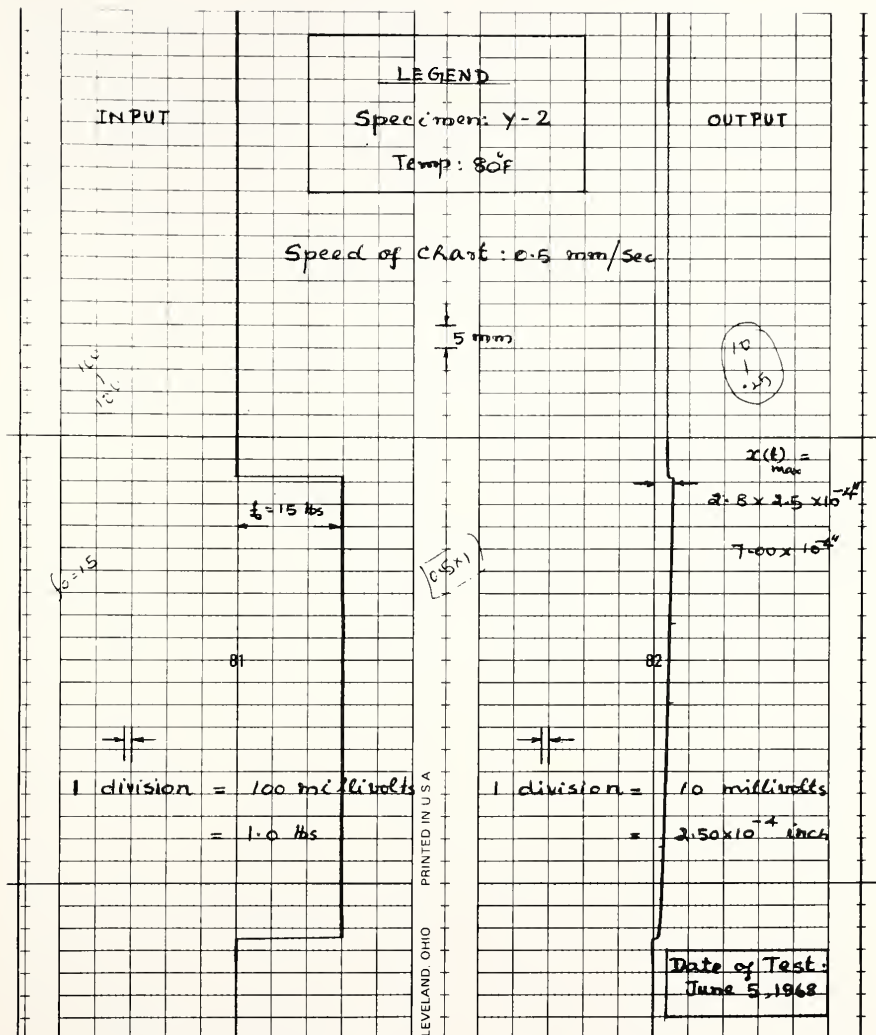 LEGEND
Specimen: Y-2
Temp: 80°F
INPUT
OUTPUT
Speed of chart : 0.5 mm/sec
5 mm
10
1
.25
x(t) max =
2.8 x 2.5 x10⁻⁴"
7.00 x 10⁻⁴"
f₀ = 15 lbs
f₀ = 15
0.5x1
81
82
1 division = 100 millivolts
= 1.0 lbs
1 division = 10 millivolts
= 2.50x10⁻⁴ inch
PRINTED IN U S A
LEVELAND, OHIO
Date of Test:
June 5, 1968